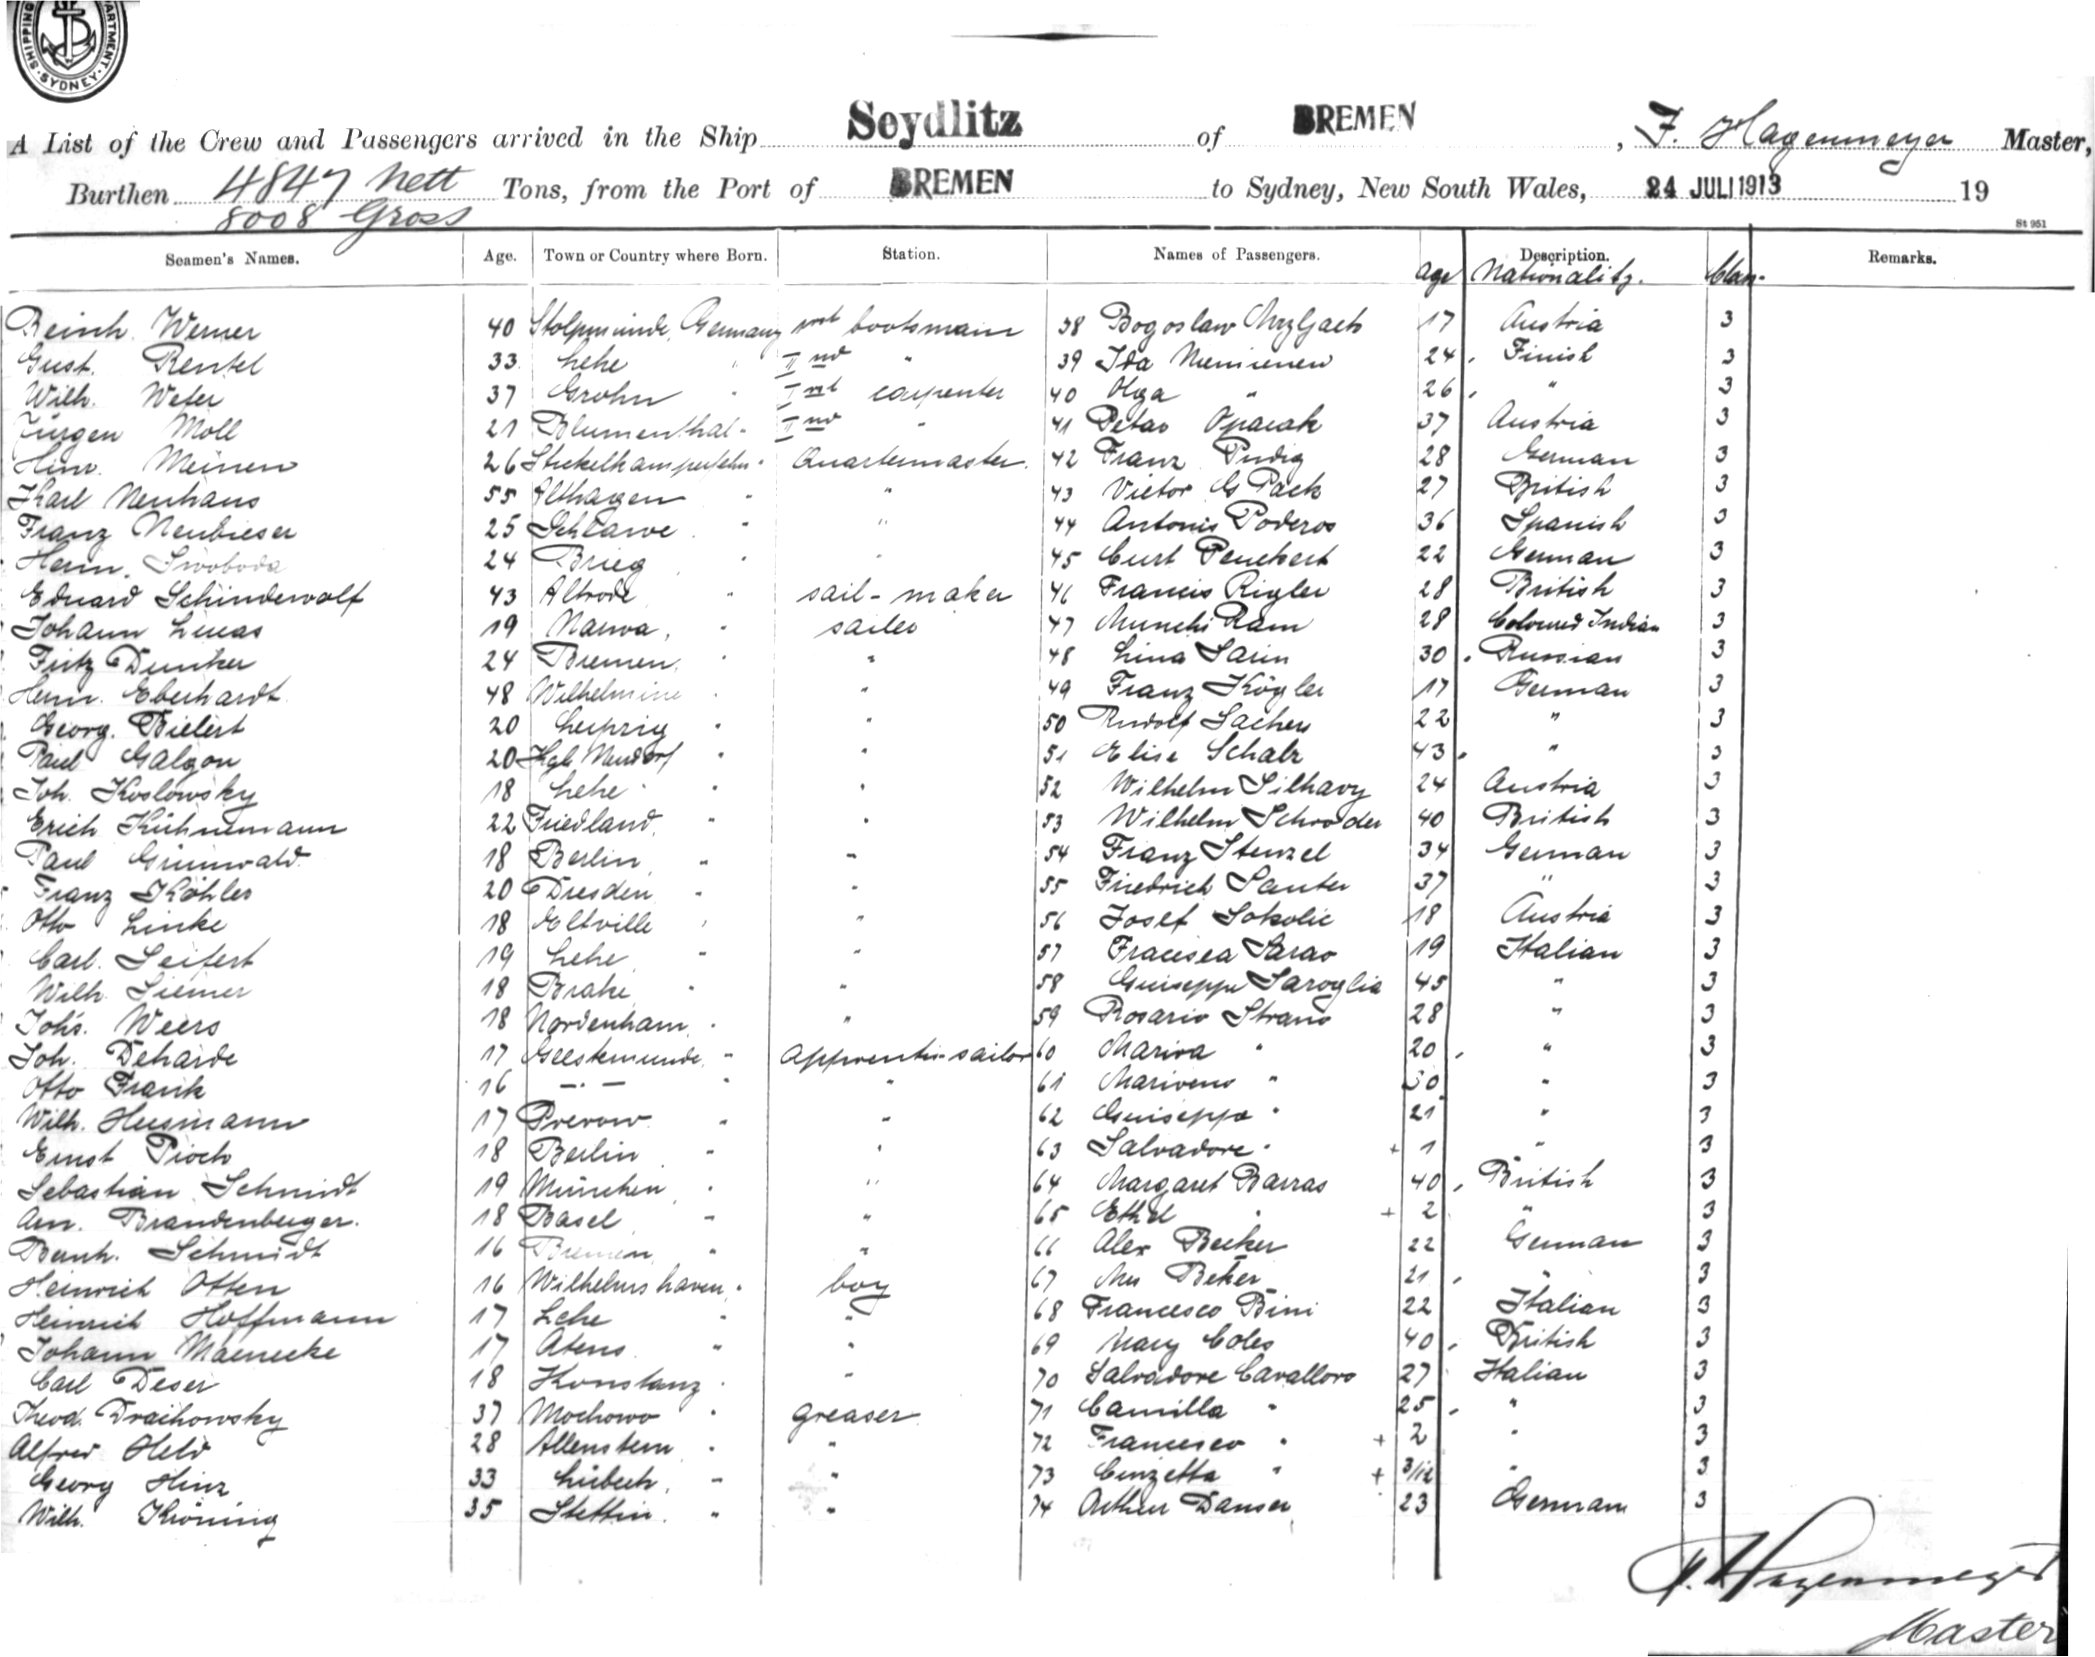 SHIPPING DEPARTMENT. SYDNEY.
A List of the Crew and Passengers arrived in the Ship Seydlitz of BREMEN, F. Hagenmeyer Master,
Burthen 4847 Nett Tons, from the Port of BREMEN to Sydney, New South Wales, 24 JULI 1913 19
8008 Gross
St 951
Seamen's Names. Age. Town or Country where Born. Station. Names of Passengers. Age Description. Nationality. Class. Remarks.
Reinh. Werner 40 Stolpmünde, Germany bootsmann 38 Bogoslaw 17 Austria 3
Gust. Rentel 33 Lehe " IInd " 39 Ida Nieminen 24 Finish 3
Wilh. Weter 37 Grohn " Ist carpenter 40 Olga " 26 " 3
Jürgen Moll 21 Blumenthal " IInd " 41 Petar Opacak 37 Austria 3
Hinr. Meinen 26 " Quartermaster. 42 Franz Pudig 28 German 3
Karl Neuhaus 55 Althagen " " 43 Victor G Pack 27 British 3
Franz Neubieser 25 Schlawe " " 44 Antonis Poderos 36 Spanish 3
Herm. Swoboda 24 Brieg " " 45 Curt Penckert 22 German 3
Eduard Schindewolf 43 Altrode " sail-maker 46 Francis Rigler 28 British 3
Johann Lucas 19 Narwa, " sailor 47 Munchi Ram 28 Coloured Indian 3
Fritz Dunker 24 Bremen, " " 48 Lina Sarin 30 Russian 3
Herm. Eberhardt 48 Wilhelmine " " 49 Franz Kögler 17 German 3
Georg. Bielert 20 Leipzig " " 50 Rudolf Sachers 22 " 3
Paul Galgon 20 " " 51 Elise Schalz 43 " 3
Joh. Koslowsky 18 Lehe " " 52 Wilhelm Silhavy 24 Austria 3
Erich Kühnemann 22 Friedland, " " 53 Wilhelm Schroder 40 British 3
Paul Grunwald 18 Berlin, " " 54 Franz Stenzel 34 German 3
Franz Köhler 20 Dresden " " 55 Friedrich Santer 37 " 3
Otto Linke 18 Eltville " " 56 Josef Sokolic 18 Austria 3
Carl. Seifert 19 Lehe " " 57 Fracesca Sarao 19 Italian 3
Wilh. Siemer 18 Brake " " 58 Guiseppe Saroglia 45 " 3
Johs. Weers 18 Nordenham, " " 59 Rosario Strano 28 " 3
Joh. Deharde 17 Geestemünde, " apprentis-sailor 60 Mariva " 20 " 3
Otto Frank 16 —·— " " 61 Mariveno " 30 " 3
Wilh. Husmann 17 Prerow " " 62 Guiseppa " 21 " 3
Ernst Pioch 18 Berlin " " 63 Salvadore " + 1 " 3
Sebastian Schmidt 19 München " " 64 Margaret Barras 40 British 3
Arn. Brandenberger. 18 Basel " " 65 Ethel " + 2 " 3
Bernh. Schmidt 16 Bremen " " 66 Alex Becker 22 German 3
Heinrich Otten 16 Wilhelmshaven, " boy 67 Mrs Beker 21 " 3
Heinrich Hoffmann 17 Lehe " " 68 Francesco Bini 22 Italian 3
Johann Maenecke 17 Atens " " 69 Mary Coles 40 British 3
Carl Deser 18 Konstanz " " 70 Salvadore Cavalloro 27 Italian 3
Theod. Draihowsky 37 Mochowo " greaser 71 Camilla " 25 " 3
Alfred Held 28 Allenstein " " 72 Francesco " + 2 " 3
Georg Hinz 33 Lübeck, " " 73 Cinzetta " + 3/12 " 3
Wilh. Kröning 35 Stettin. " " 74 Arthur Danser 23 German 3
F. Hagenmeyer
Master